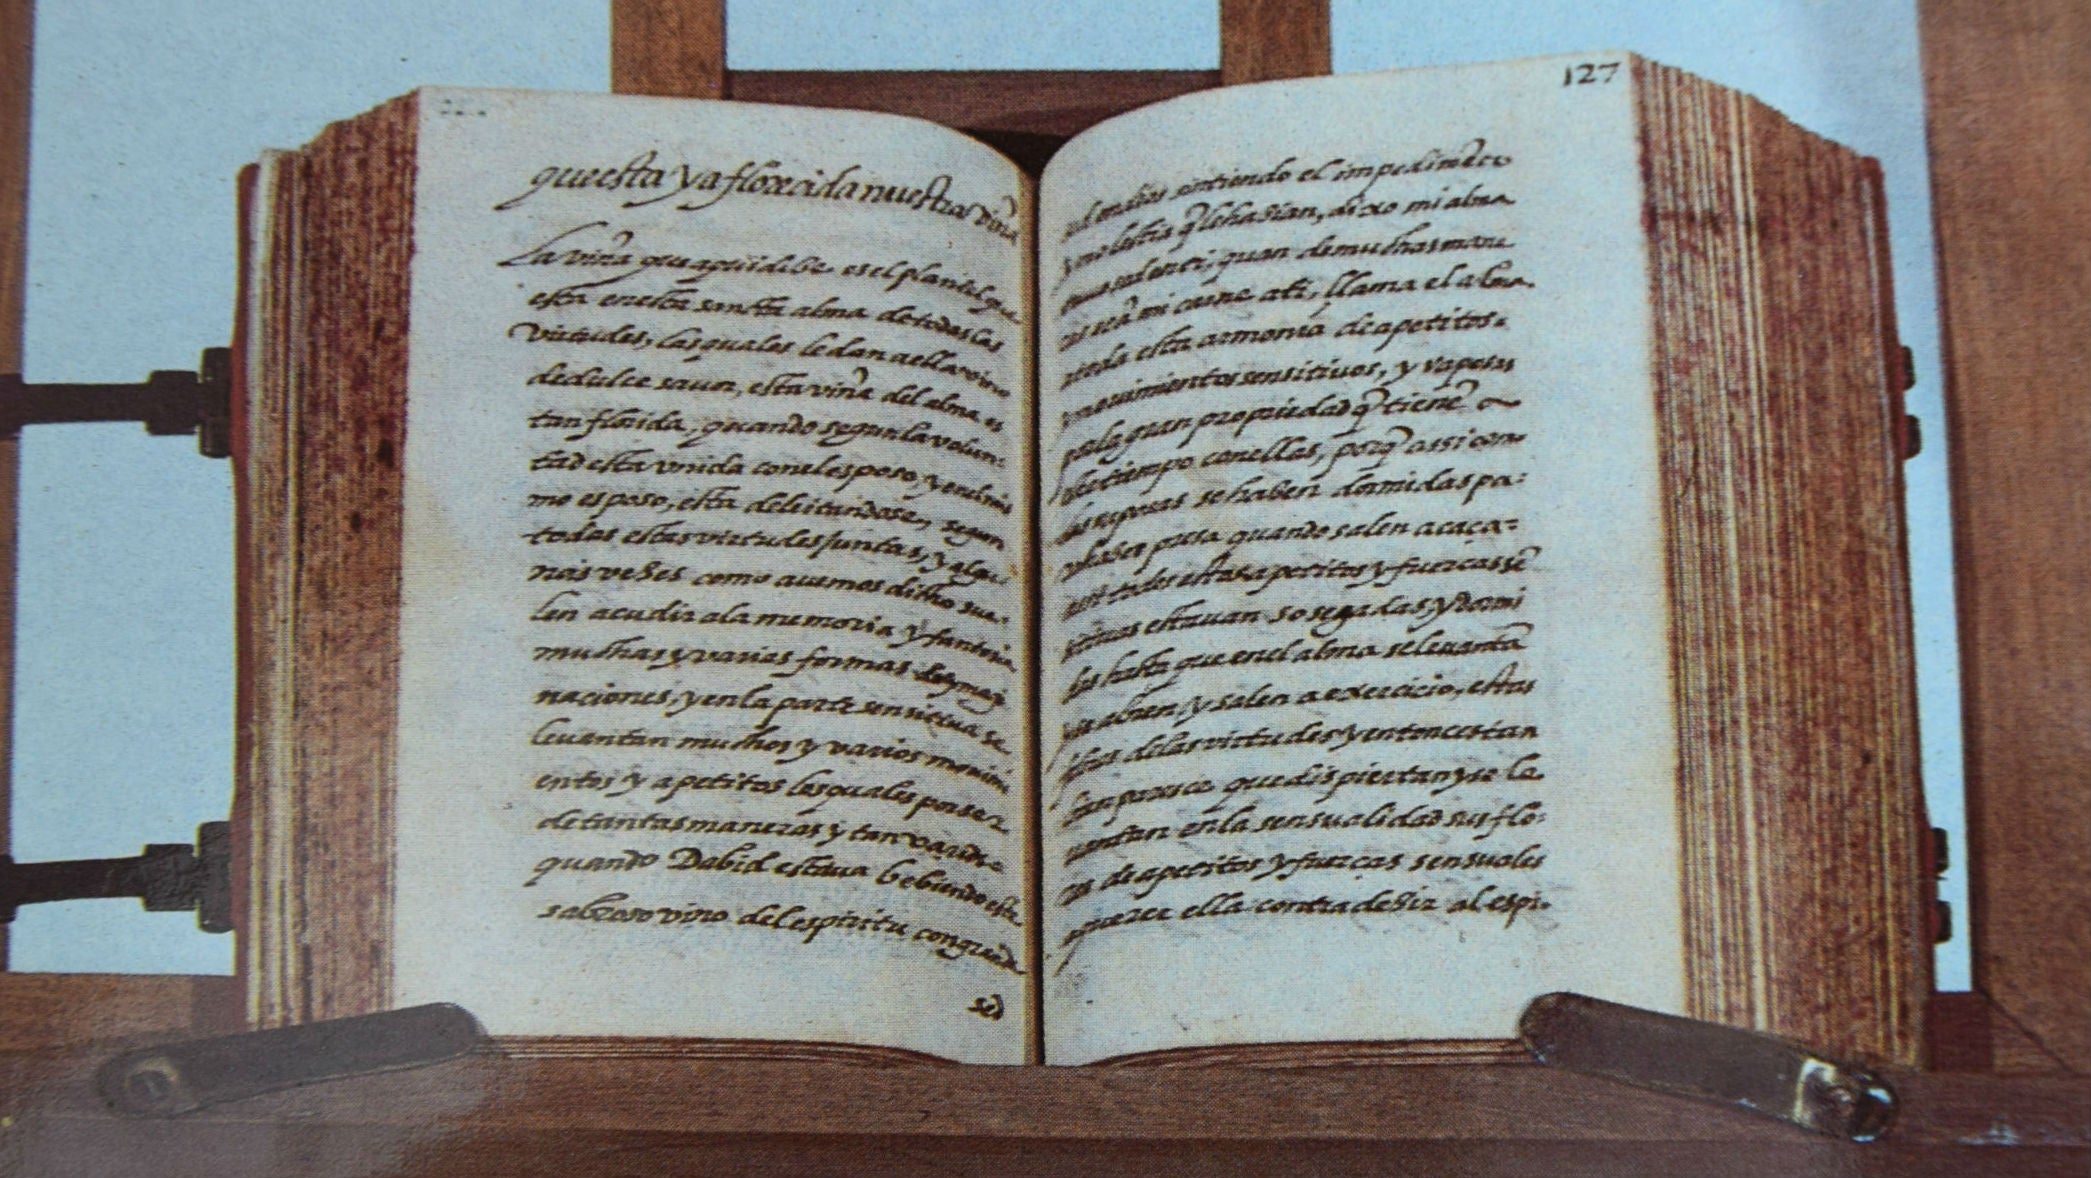 questa ya florecida nuestra viña
La viña que aqui dibe es el plantel que
esta en esta sancta alma de todas las
virtudes, las quales le dan a ella vino
de dulce sauor, esta viña del alma es
tan florida, quando segun la volun-
tad esta vnida con el esposo, y en el mis
mo esposo, esta deleitandose, segun
todas estas virtudes juntas, y algu
nas veses como auemos dicho sue-
len acudir a la memoria y fantasia
muchas y varias formas
naciones, y en la parte sensitiua se
leuantan muchos y varios mouimi
entos y apetitos los quales por ser
de tantas maneras y tan varios
quando Dabid estaua bebiendo este
sabroso vino del espiritu con grande
sed
127
sintiendo el impedimẽto
y molestia q̃ le hasian, dixo mi alma
quan de muchas mane
mi carne a ti, llama el alma
toda esta armonia de apetitos
y mouimientos sensitiuos, y raposas
por la gran propiedad q̃ tienẽ
este tiempo con ellas, porq̃ assi como
las raposas se hasen dormidas pa-
ra haser presa quando salen a caça-
assi todos estos apetitos y fuerças sẽ
sitiuas estauan sosegadas y dormi
das hasta que en el alma se leuantã
y se abren y salen a exercicio, estas
flores de las virtudes y entonces tan
bien parece que dispiertan y se le
uantan en la sensualidad sus flo-
res de apetitos y fuerças sensuales
a querer ella contradesir al espi-